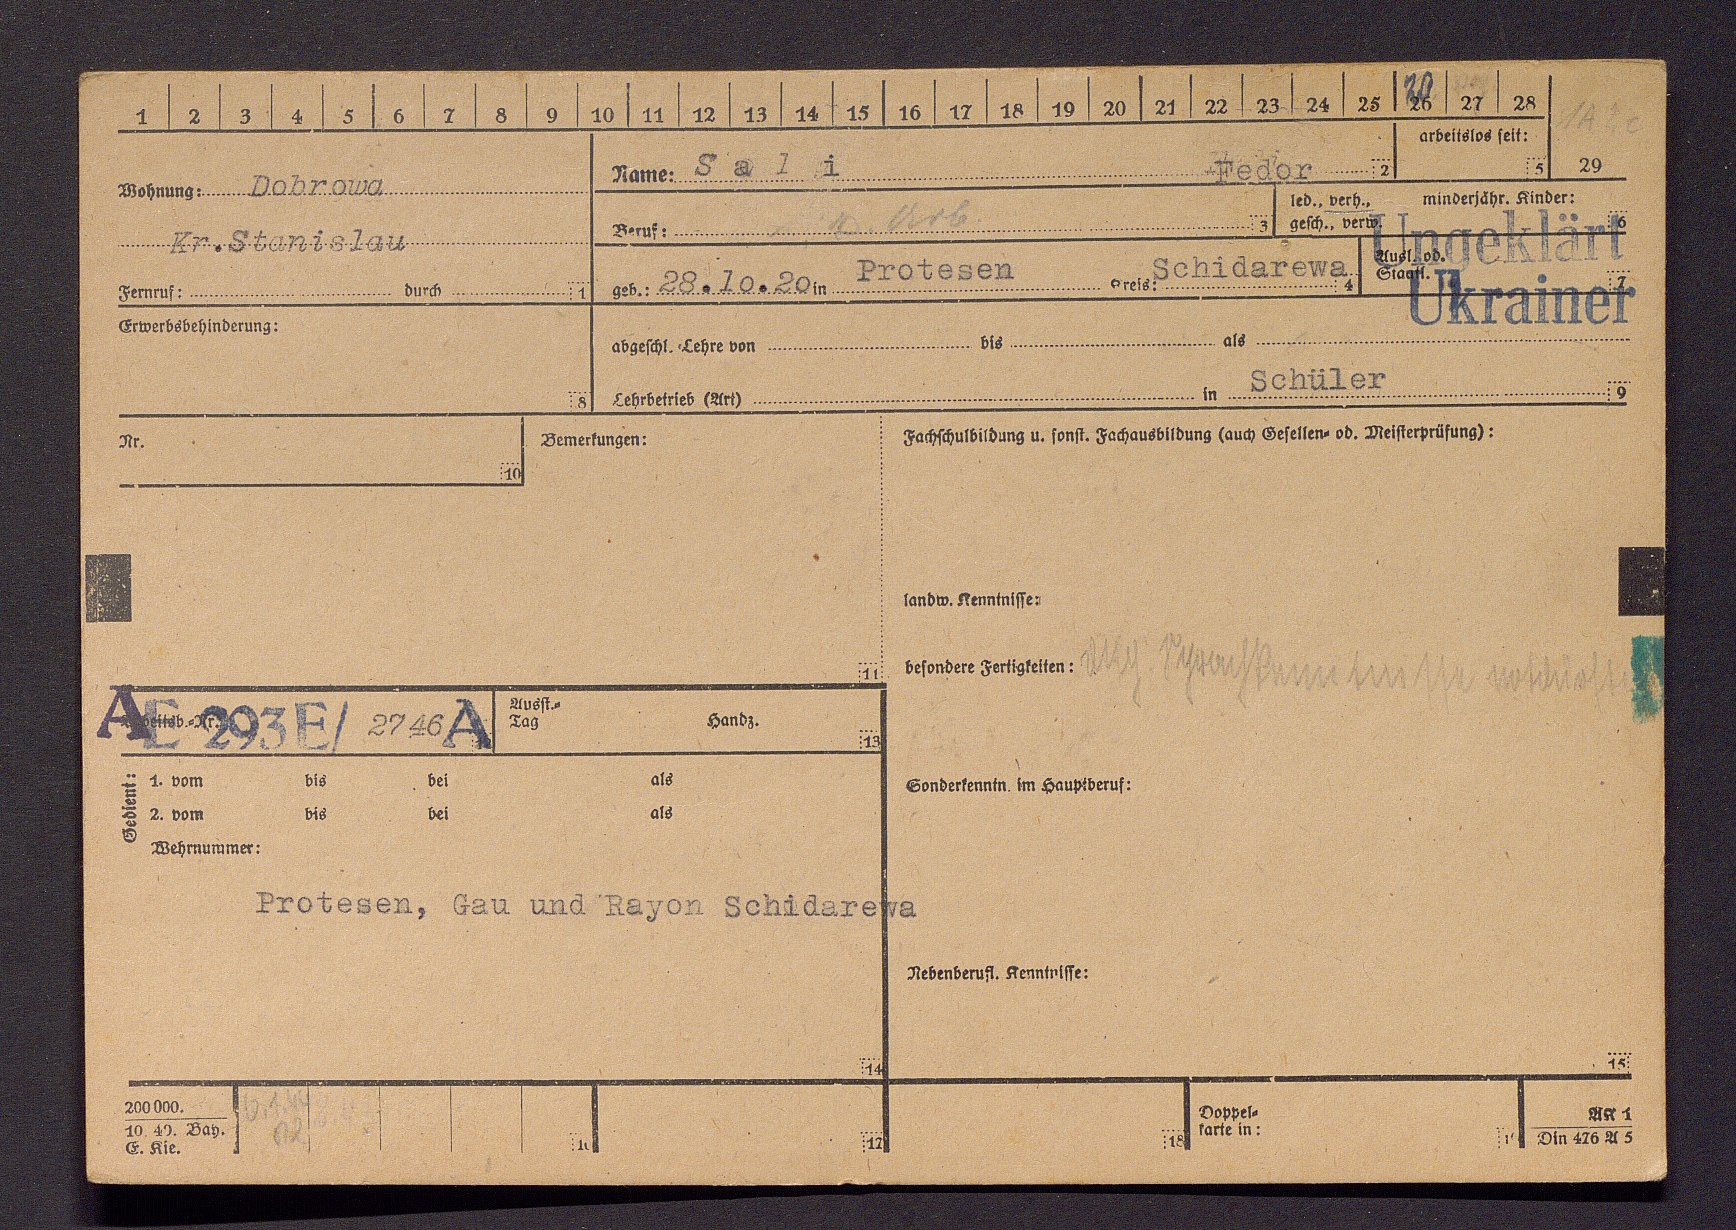 1 2 3 4 5 6 7 8 9 10 11 12 13 14 15 16 17 18 19 20 21 22 23 24 25 26 27 28
20
arbeitslos seit:
5 29
Wohnung: Dobrowa
Kr.Stanislau
Fernruf: durch 1
Name: S a l i Fedor 2
Beruf: Arb. 3
led., verh., gesch., verw. minderjähr. Kinder:
6
geb.: 28.10.20 in Protesen Kreis: Schidarewa 4
Ausl. od.
Staatl. 7
Ungeklärt
Ukrainer
Erwerbsbehinderung:
8
abgeschl. Lehre von bis als
Lehrbetrieb (Art) in Schüler 9
Nr.
10
Bemerkungen:
11
Fachschulbildung u. sonst. Fachausbildung (auch Gesellen- od. Meisterprüfung):
landw. Kenntnisse:
besondere Fertigkeiten: Sprachkenntnisse
A Arbeitsb.-Nr. E 293 E/ 2746 A
Ausst.-
Tag Handz.
13
Gedient: 1. vom bis bei als
2. vom bis bei als
Wehrnummer:
Protesen, Gau und Rayon Schidarewa
14
Sonderkenntn. im Hauptberuf:
Nebenberufl. Kenntnisse:
15
200000.
10. 40. Bay.
E. Kie.
17
18
Doppel-
karte in:
AK 1
Din 476 A 5